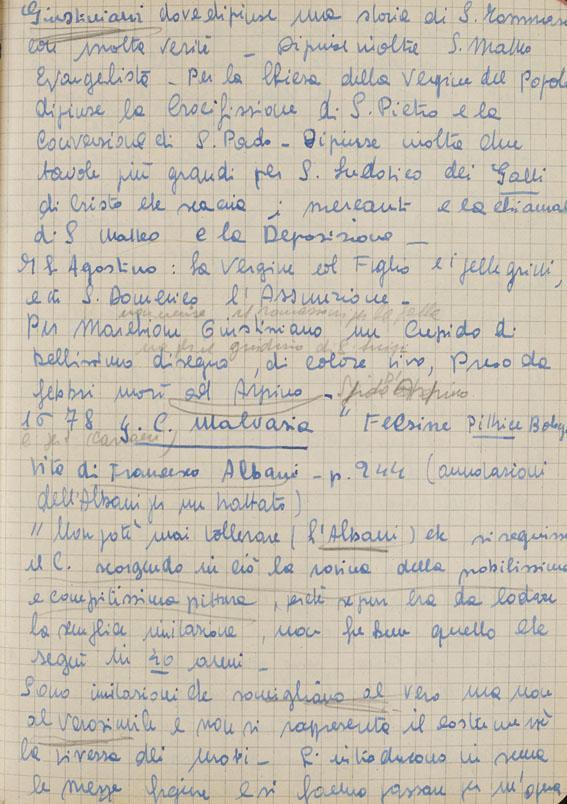 Giustiniani dove dipinse una storia di S. Tommaso
con molta verità - Dipinse inoltre S. Matteo
Evangelista - Per la Chiesa della Vergine del Popolo
dipinse la Crocifissione di S. Pietro e la
Conversione di S. Paolo - Dipinse inoltre due
tavole più grandi per S. Ludovico dei Galli
di Cristo che scaccia i mercanti e la chiamat
di S Matteo e la Deposizione -
S. Agostino: La Vergine col Figlio e i pellegrini,
e di S. Domenico l'Assunzione -
Per Marchione Giustiniano un Cupido di
bellissimo disegno, di colore vivo, Preso da
febbri morì ad Arpino -
1678 C. Malvasia " Felsina Pittrice Bologn
Vita di Francesco Albani - p. 244 (annotazioni
dell'Albani per un trattato)
" Non poté mai tollerare (l'Albani) che si seguisse
il C. scorgendo in ciò la rovina della nobilissima
e compitissima pittura, perché se pur era da lodare
la semplice imitazione, non fu bene quello che
seguì in 40 anni -
Sono imitazioni che somigliano al vero ma non
al verosimile e non si rappresenta il costume né
la vivezza dei moti - Si introducono in scena
le mezze figure e si fanno passare per un'opera